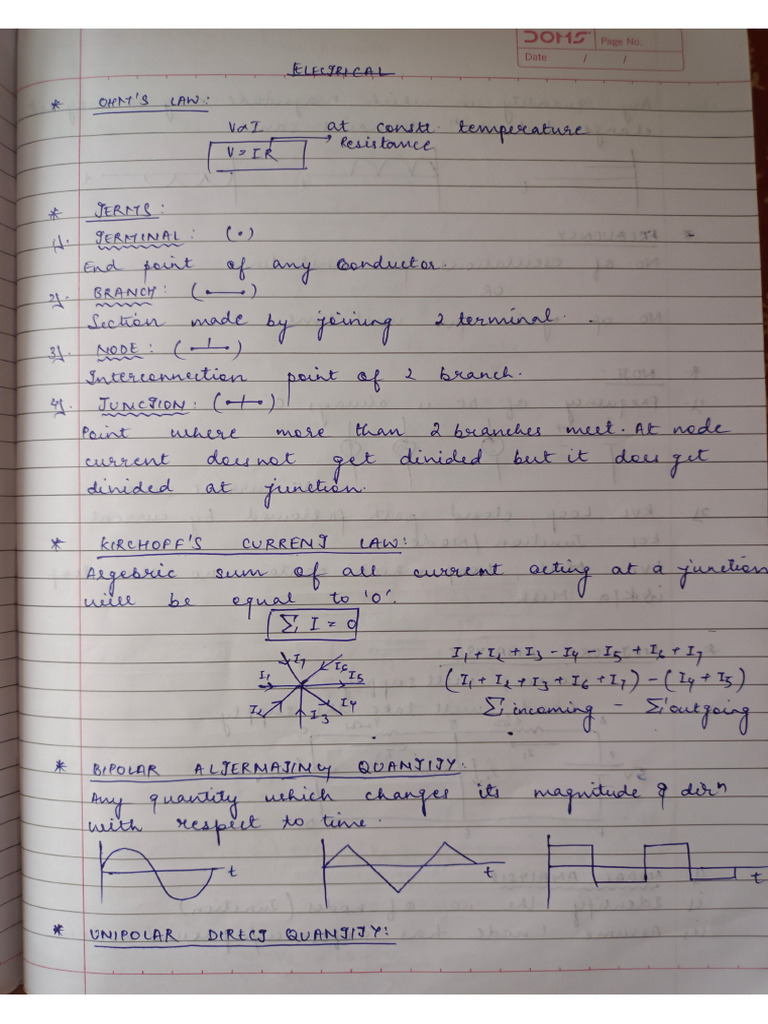 DOMS Page No.
Date / /
ELECTRICAL
* OHM'S LAW:
V∝I at constt. temperature
V = IR → Resistance
* TERMS:
1). TERMINAL: (•)
End point of any conductor.
2). BRANCH: (•—•)
Section made by joining 2 terminal.
3). NODE: ( )
Interconnection point of 2 branch.
4). JUNCTION: ( )
Point where more than 2 branches meet. At node
current does not get divided but it does get
divided at junction.
* KIRCHOFF'S CURRENT LAW:
Algebric sum of all current acting at a junction
will be equal to '0'.
Σ I = 0
I7 I6
I1 I5
I2 I3 I4
I1 + I2 + I3 - I4 - I5 + I6 + I7
(I1 + I2 + I3 + I6 + I7) - (I4 + I5)
Σ incoming - Σ outgoing
* BIPOLAR ALTERNATING QUANTITY:
Any quantity which changes its magnitude & dirn
with respect to time.
t t t
* UNIPOLAR DIRECT QUANTITY: